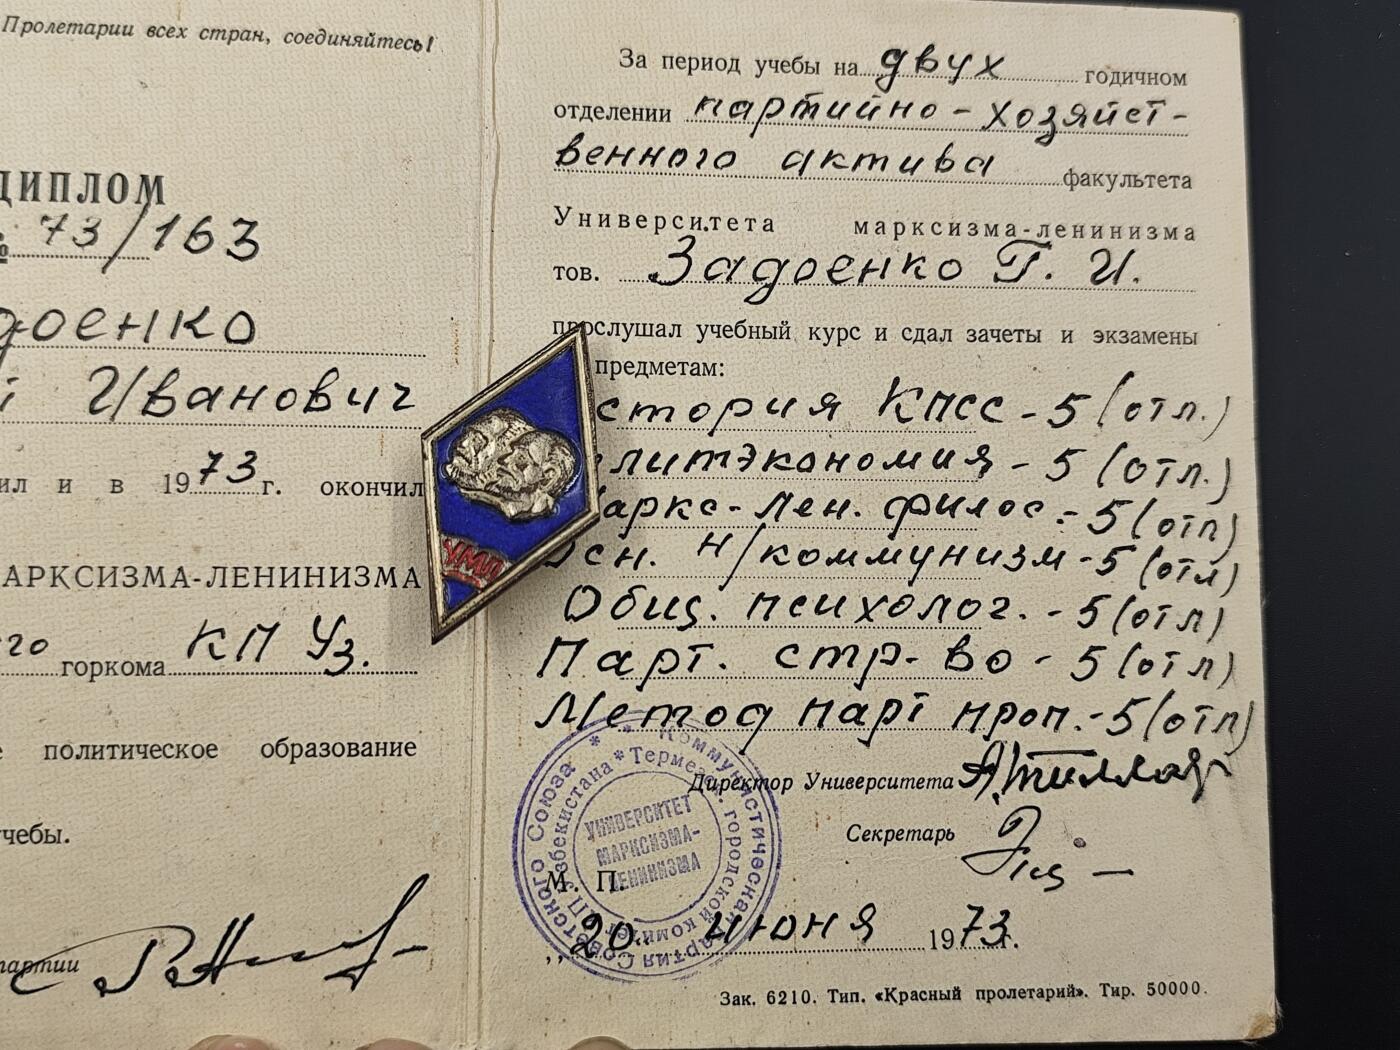 Пролетарии всех стран, соединяйтесь!
ДИПЛОМ
№ 73/163
доенко
й Иванович
ил и в 1973 г. окончил
АРКСИЗМА-ЛЕНИНИЗМА
го горкома КП Уз.
е политическое образование
учебы.
партии
За период учебы на двух годичном
отделении партийно-хозяйст-
венного актива факультета
Университета марксизма-ленинизма
тов. Задоенко Г. И.
прослушал учебный курс и сдал зачеты и экзамены
предметам:
стория КПСС - 5 (отл.)
литэкономия - 5 (отл.)
Маркс-Лен. филос. - 5 (отл)
Осн. н/коммунизм - 5 (отл)
Общ. психолог. - 5 (отл)
Парт. стр-во - 5 (отл)
Метод парт проп. - 5 (отл)
Директор Университета
Секретарь
М. П.
„20 июня 1973 г.
Зак. 6210. Тип. «Красный пролетарий». Тир. 50000.
УМЛ
* Коммунистическая партия Советского Союза *
* Термез. городской комитет КП Узбекистана
УНИВЕРСИТЕТ
МАРКСИЗМА-
ЛЕНИНИЗМА